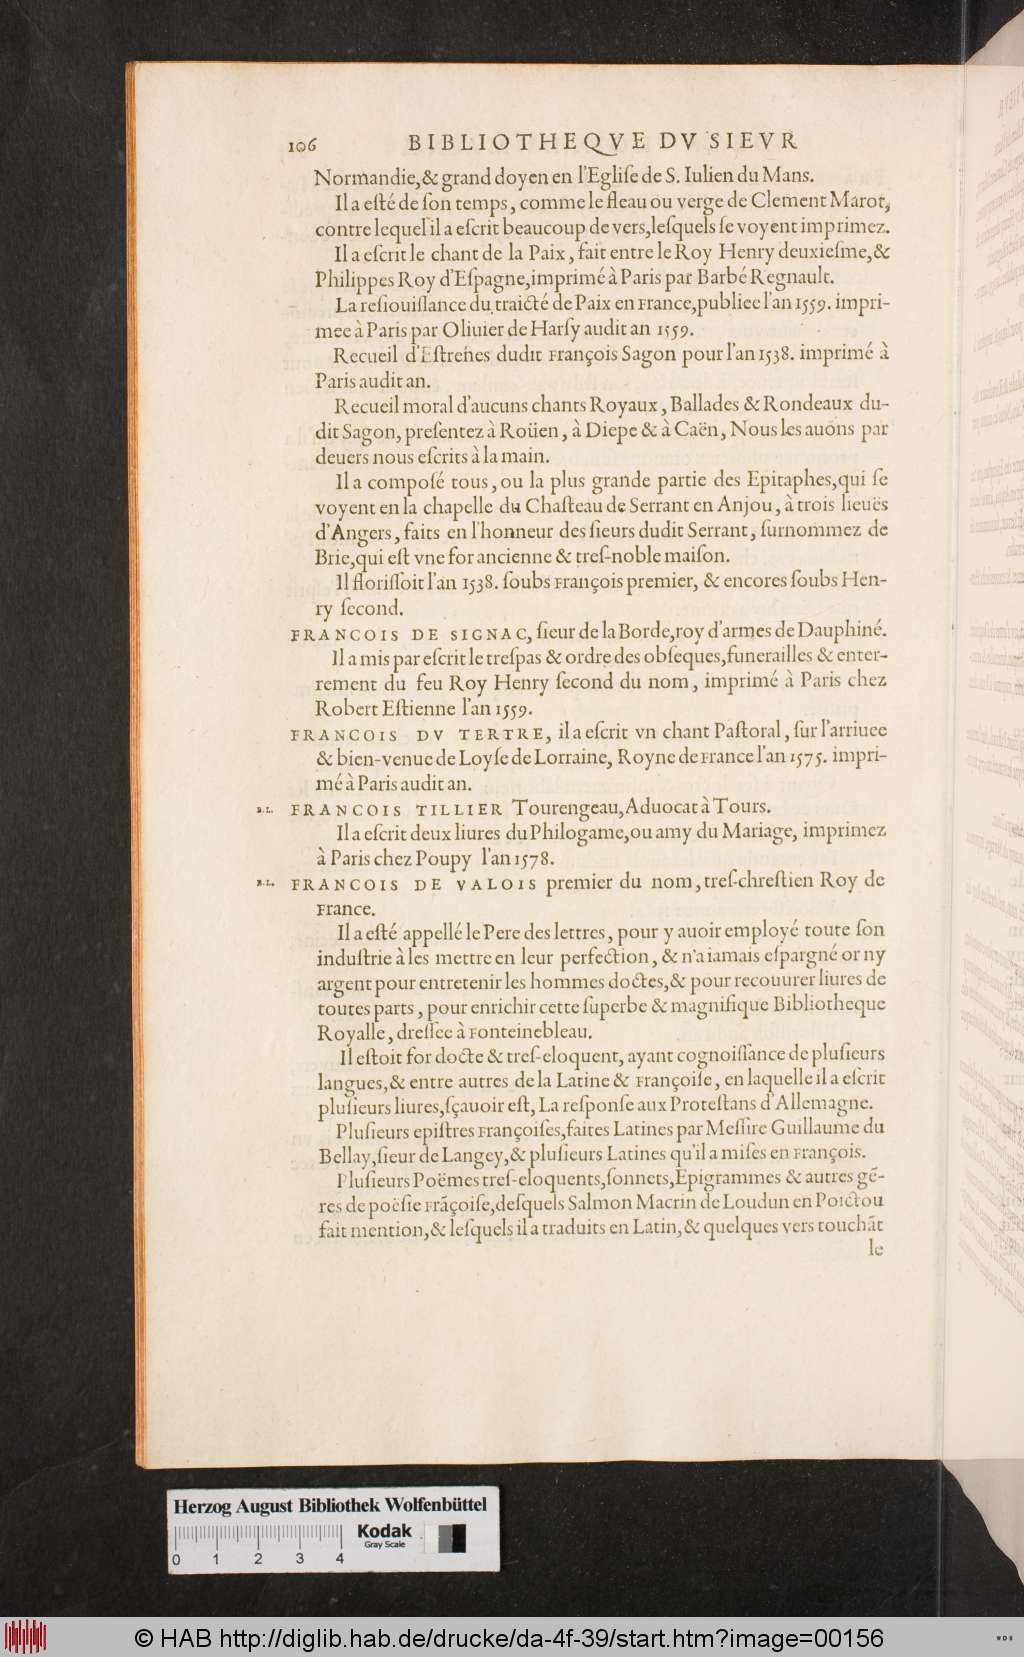 106 BIBLIOTHEQVE DV SIEVR
Normandie,& grand doyen en l'Egliſe de S. Iulien du Mans.
Il a eſté de ſon temps, comme le fleau ou verge de Clement Marot,
contre lequel il a eſcrit beaucoup de vers,leſquels ſe voyent imprimez.
Il a eſcrit le chant de la Paix, fait entre le Roy Henry deuxieſme,&
Philippes Roy d'Eſpagne,imprimé à Paris par Barbé Regnault.
La reſiouiſſance du traicté de Paix en France,publiee l'an 1559. impri-
mee à Paris par Oliuier de Harſy audit an 1559.
Recueil d'Eſtrenes dudit François Sagon pour l'an 1538. imprimé à
Paris audit an.
Recueil moral d'aucuns chants Royaux, Ballades & Rondeaux du-
dit Sagon, preſentez à Roüen, à Diepe & à Caën, Nous les auons par
deuers nous eſcrits à la main.
Il a compoſé tous, ou la plus grande partie des Epitaphes,qui ſe
voyent en la chapelle du Chaſteau de Serrant en Anjou, à trois lieuës
d'Angers, faits en l'honneur des ſieurs dudit Serrant, ſurnommez de
Brie,qui eſt vne for ancienne & treſ-noble maiſon.
Il floriſſoit l'an 1538. ſoubs François premier, & encores ſoubs Hen-
ry ſecond.
FRANCOIS DE SIGNAC, ſieur de la Borde,roy d'armes de Dauphiné.
Il a mis par eſcrit le treſpas & ordre des obſeques,funerailles & enter-
rement du feu Roy Henry ſecond du nom, imprimé à Paris chez
Robert Eſtienne l'an 1559.
FRANCOIS DV TERTRE, il a eſcrit vn chant Paſtoral, ſur l'arriuee
& bien-venue de Loyſe de Lorraine, Royne de France l'an 1575. impri-
mé à Paris audit an.
B.L. FRANCOIS TILLIER Tourengeau,Aduocat à Tours.
Il a eſcrit deux liures du Philogame,ou amy du Mariage, imprimez
à Paris chez Poupy l'an 1578.
B.L. FRANCOIS DE VALOIS premier du nom, treſ-chreſtien Roy de
France.
Il a eſté appellé le Pere des lettres, pour y auoir employé toute ſon
induſtrie à les mettre en leur perfection, & n'a iamais eſpargné or ny
argent pour entretenir les hommes doctes,& pour recouurer liures de
toutes parts, pour enrichir cette ſuperbe & magnifique Bibliotheque
Royalle, dreſſee à Fonteinebleau.
Il eſtoit for docte & treſ-eloquent, ayant cognoiſſance de pluſieurs
langues,& entre autres de la Latine & Françoiſe, en laquelle il a eſcrit
pluſieurs liures,ſçauoir eſt, La reſponſe aux Proteſtans d'Allemagne.
Pluſieurs epiſtres Françoiſes,faites Latines par Meſſire Guillaume du
Bellay,ſieur de Langey,& pluſieurs Latines qu'il a miſes en François.
Pluſieurs Poëmes treſ-eloquents,ſonnets,Epigrammes & autres gẽ-
res de poëſie Frãçoiſe,deſquels Salmon Macrin de Loudun en Poictou
fait mention,& leſquels il a traduits en Latin,& quelques vers touchãt
le
Herzog August Bibliothek Wolfenbüttel
0 1 2 3 4
Kodak
Gray Scale
© HAB http://diglib.hab.de/drucke/da-4f-39/start.htm?image=00156